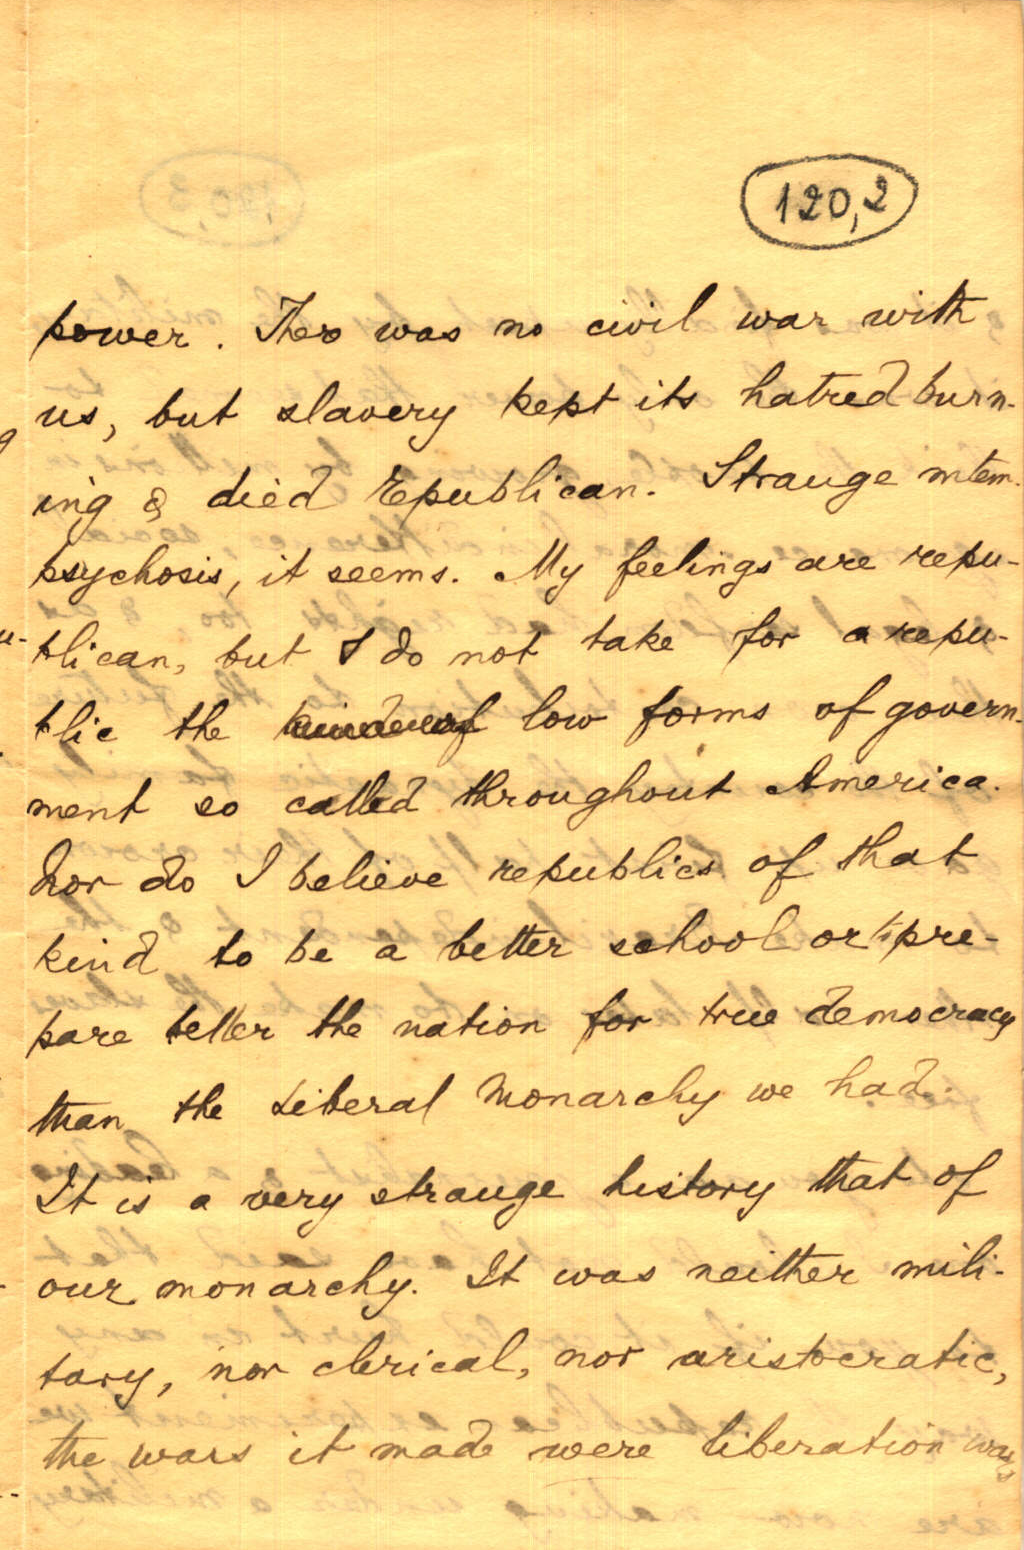 120,2
power. There was no civil war with
us, but slavery kept its hatred burn-
ing & died republican. Strange metem-
psychosis, it seems. My feelings are repu-
blican, but I do not take for a repu-
blic the low forms of govern-
ment so called throughout America.
Nor do I believe republics of that
kind to be a better school or to pre-
pare better the nation for true democracy
than the Liberal Monarchy we had.
It is a very strange history that of
our monarchy. It was neither mili-
tary, nor clerical, nor aristocratic,
the wars it made were liberation wars